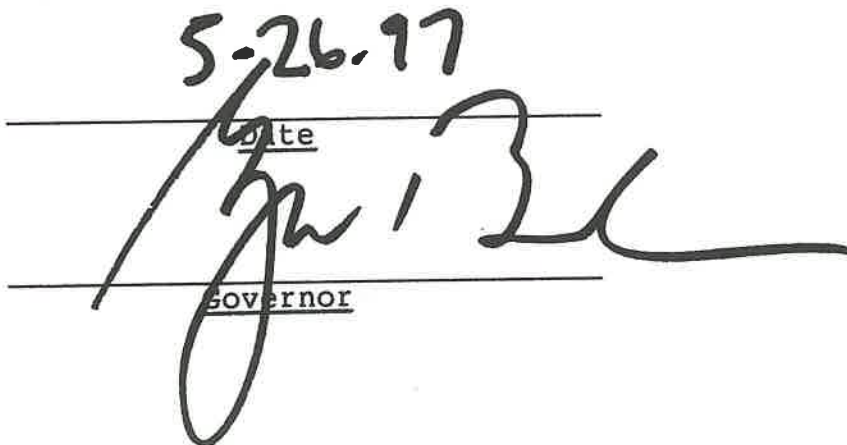 5-26.97
Date
Governor